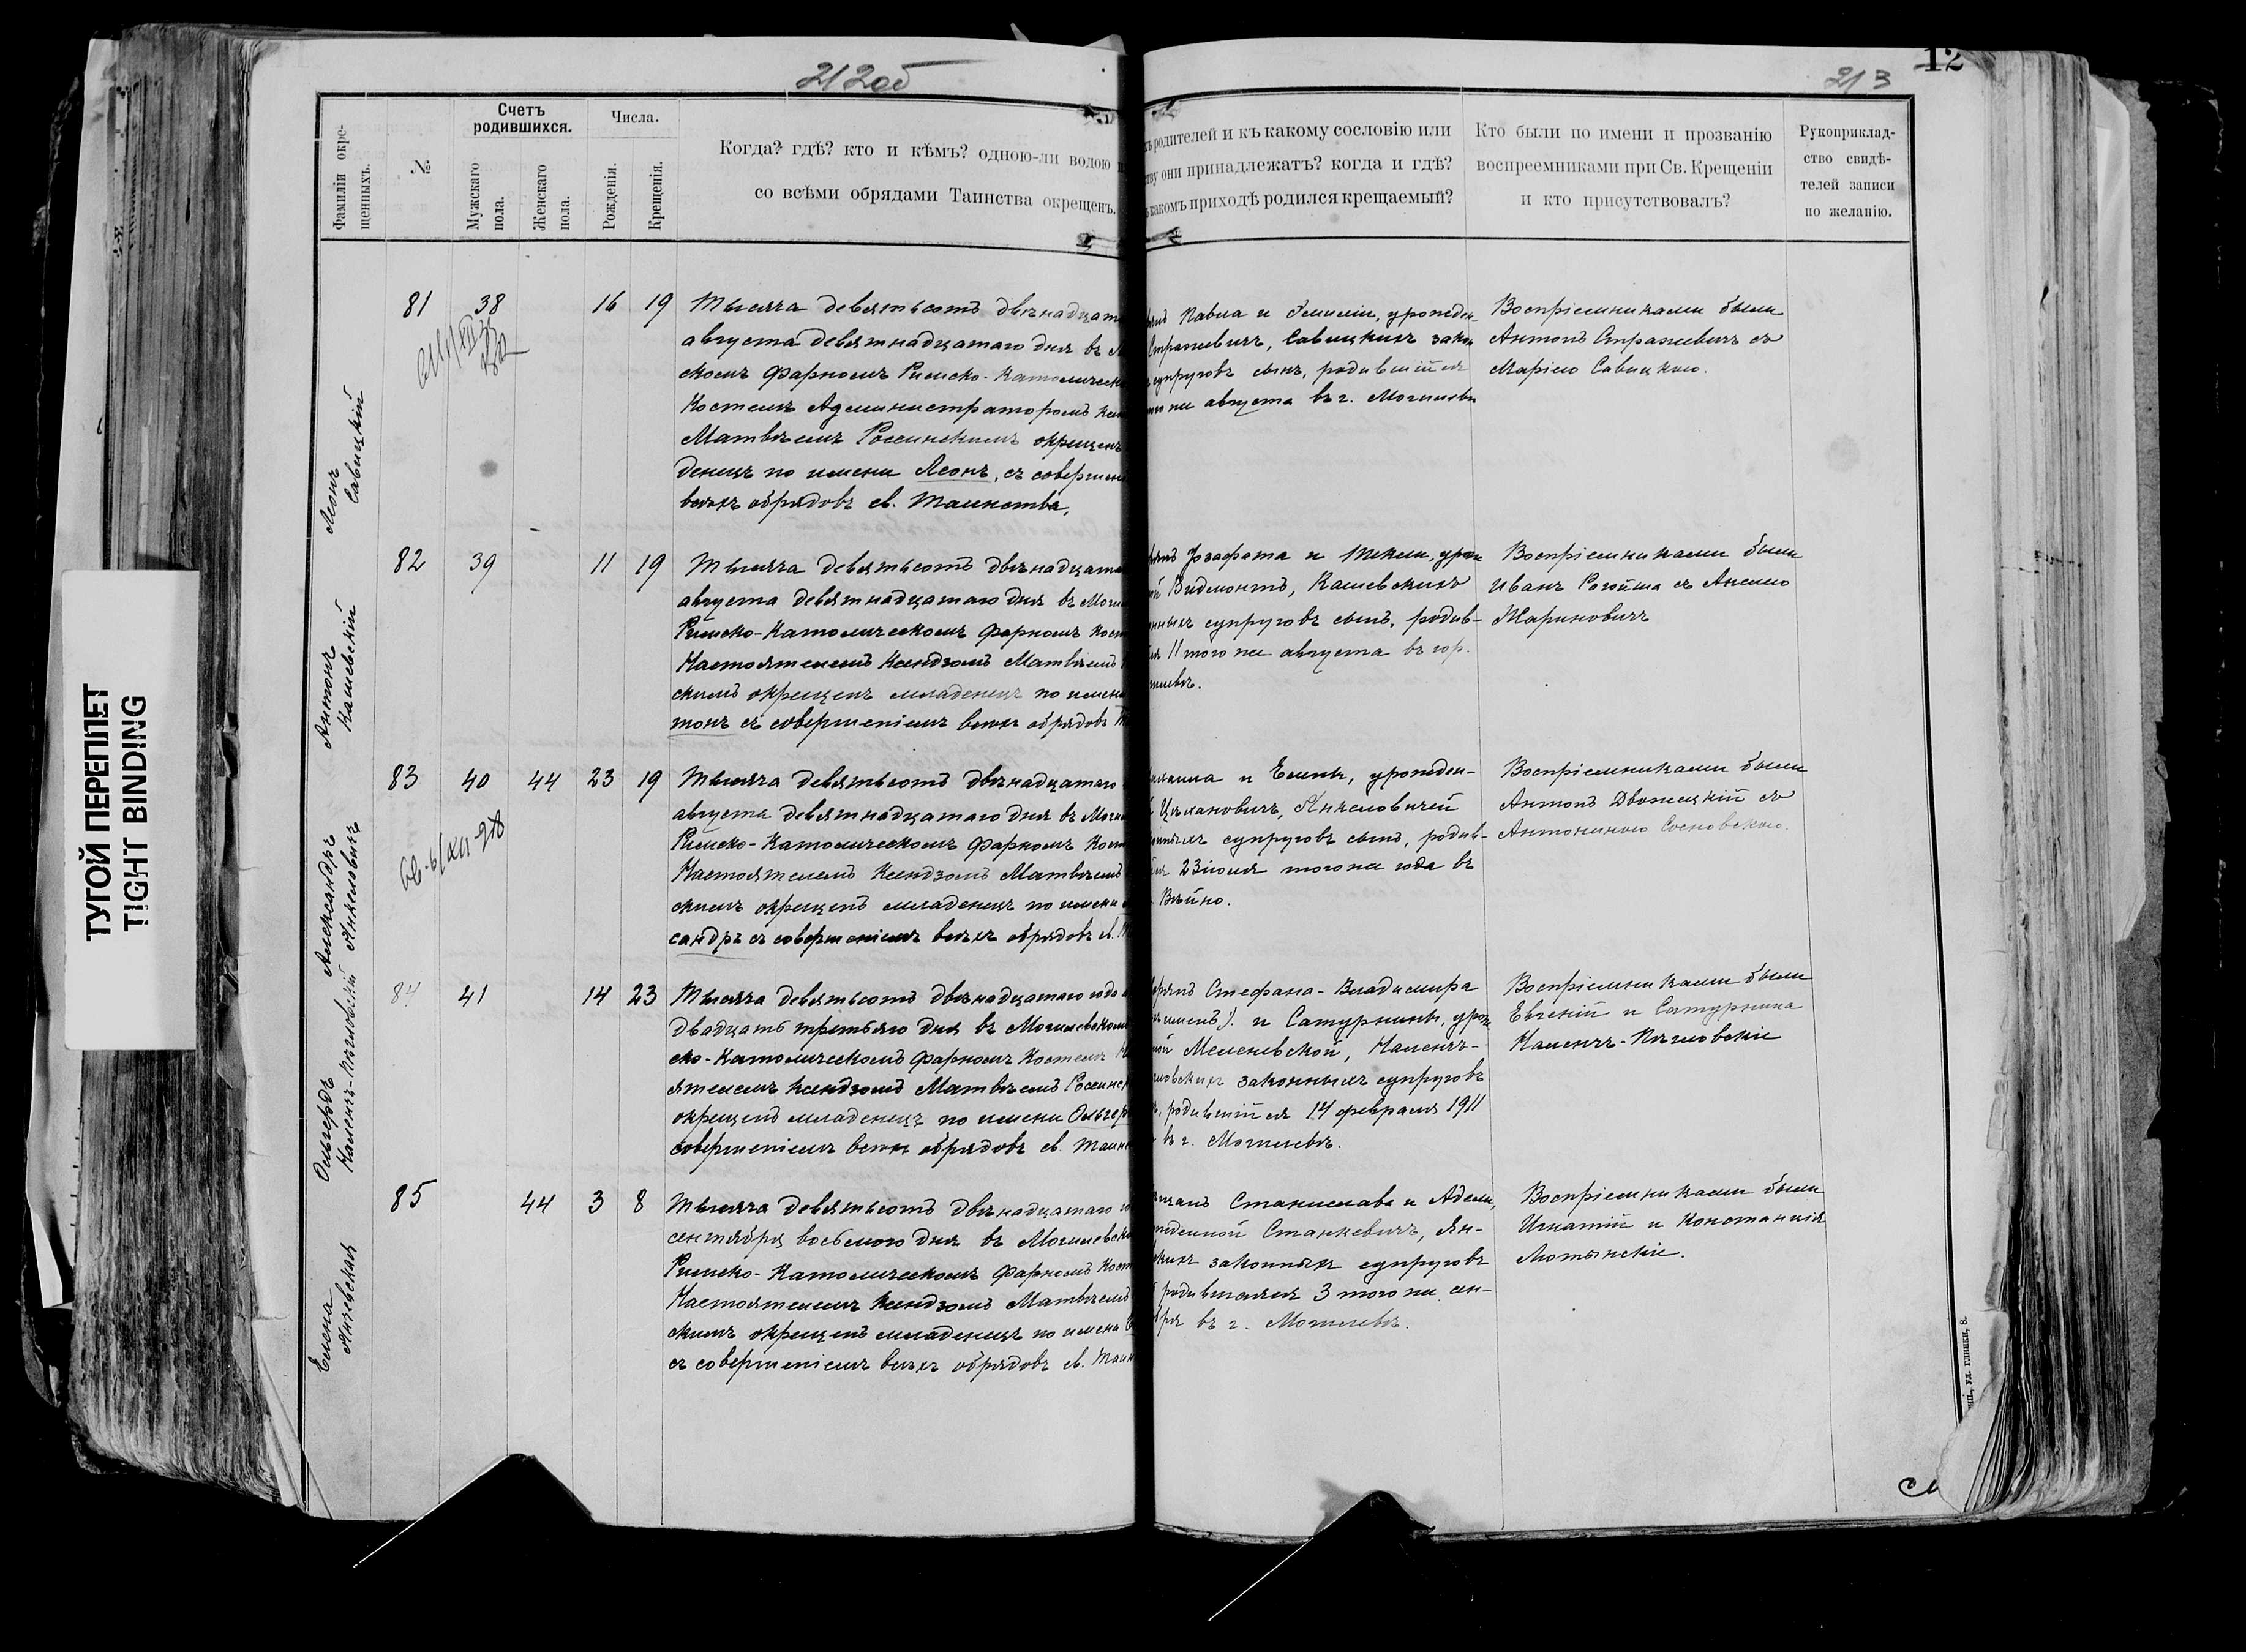 212об
213
12
ТУГОЙ ПЕРЕПЛЕТ
TIGHT BINDING
Фамиліи окре-
щенныхъ.
№
Счетъ
родившихся.
Мужскаго
пола.
Женскаго
пола.
Числа.
Рожденія.
Крещенія.
Когда? гдѣ? кто и кѣмъ? одною-ли водою
со всѣми обрядами Таинства окрещенъ.
родителей и къ какому сословію или
они принадлежатъ? когда и гдѣ?
какомъ приходѣ родился крещаемый?
Кто были по имени и прозванію
воспреемниками при Св. Крещеніи
и кто присутствовалъ?
Рукоприклад-
ство свидѣ-
телей записи
по желанію.
Леонъ
Савицкій
81 38 16 19
Тысяча девятьсотъ двѣнадцат
августа девятнадцатаго дня въ М
скомъ Фарномъ Римско-Католическ
Костелѣ Администраторомъ
Матвѣемъ Россинскимъ окрещенъ
денецъ по имени Леонъ, съ соверше
всѣхъ обрядовъ св. Таинства.
Павла и Эмиліи, урожден-
Стражевичъ, Савицкихъ закон
супруговъ сынъ, родившійся
того же августа въ г. Могилевѣ
Воспріемниками были
Антонъ Стражевичъ съ
Маріею Савицкою.
Антонъ
Кашевскій
82 39 11 19
Тысяча девятьсотъ двѣнадцата
августа девятнадцатаго дня въ Моги
Римско-Католическомъ Фарномъ Кост
Настоятелемъ Ксендзомъ Матвѣемъ
скимъ окрещенъ младенецъ по имени
тонъ съ совершеніемъ всѣхъ обрядовъ
Іозафата и Текли, урож
Видмонтъ, Кашевскихъ
нныхъ супруговъ сынъ, родив-
11 того же августа въ гор.
гилевѣ.
Воспріемниками были
Иванъ Рогойша съ Анелею
Мариновичъ
Александръ
Анкеловичъ
83 40 44 23 19
Тысяча девятьсотъ двѣнадцатаго
августа девятнадцатаго дня въ Моги
Римско-Католическомъ Фарномъ Кост
Настоятелемъ Ксендзомъ Матвѣемъ
скимъ окрещенъ младенецъ по имени
сандръ съ совершеніемъ всѣхъ обрядовъ св.
и Елены, урожден-
Цѣхановичъ, Анкеловичей
супруговъ сынъ, родив-
23 іюля того же года въ
Вѣйно.
Воспріемниками были
Антонъ Двожецкій съ
Антониною Сосновскою.
Ольгердъ
Каменъ-Пѣгловскій
84 41 14 23
Тысяча девятьсотъ двѣнадцатаго года
двадцать третьяго дня въ Могилевском
ско-Католическомъ Фарномъ Костелѣ На
ятелемъ Ксендзомъ Матвѣемъ Россинск
окрещенъ младенецъ по имени Ольгер
совершеніемъ всѣхъ обрядовъ св. Таин
рянъ Стефана-Владимира
и Сатурнины, урож
Меленевской, Каменъ-
гловскихъ законныхъ супруговъ
родившійся 14 февраля 1911
въ г. Могилевѣ.
Воспріемниками были
Евгеній и Сатурнина
Каменъ-Пѣгловскіе
Елена
Янковская
85 44 3 8
Тысяча девятьсотъ двѣнадцатаго го
сентября восьмого дня въ Могилевско
Римско-Католическомъ Фарномъ Кост
Настоятелемъ Ксендзомъ Матвѣемъ
скимъ окрещенъ младенецъ по имени
съ совершеніемъ всѣхъ обрядовъ св. Таин
щанъ Станислава и Адели,
жденной Станкевичъ, Ян-
скихъ законныхъ супруговъ
родившаяся 3 того же сен-
бря въ г. Могилевѣ.
Воспріемниками были
Игнатій и Констанція
Лотынскіе.
ул. Глинки, 8.